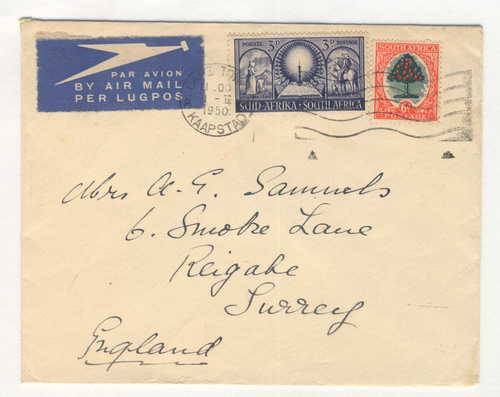 PAR AVION
BY AIR MAIL
PER LUGPOS
POSSEEL 3D 3D POSTAGE
SUID-AFRIKA · SOUTH AFRICA
SOUTH AFRICA
6D
POSTAGE
1950
KAAPSTAD
Mrs A-G. Samuels
6. Smoke Lane
Reigate
Surrey
England